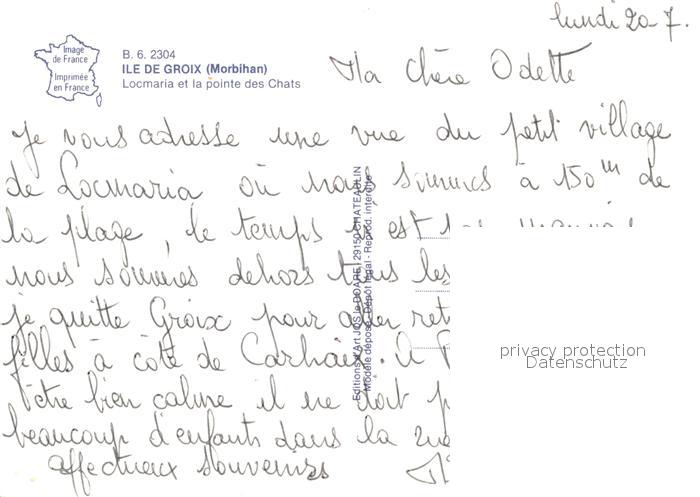 lundi 20-7.
Image
de France
Imprimée
en France
B. 6. 2304
ILE DE GROIX (Morbihan)
Locmaria et la pointe des Chats
Ma chère Odette
Je vous adresse une vue du petit village
de Locmaria où nous sommes à 150m de
la plage, le temps est
nous sommes dehors tous les
je quitte Groix pour aller
filles à côté de Carhaix. A
être bien calme il ne doit
beaucoup d'enfants dans la
affectueux souvenirs
Editions d'Art JOS le DOARE, 29150 CHATEAULIN
Modèle déposé - Dépôt légal - Reprod. interdite
privacy protection
Datenschutz